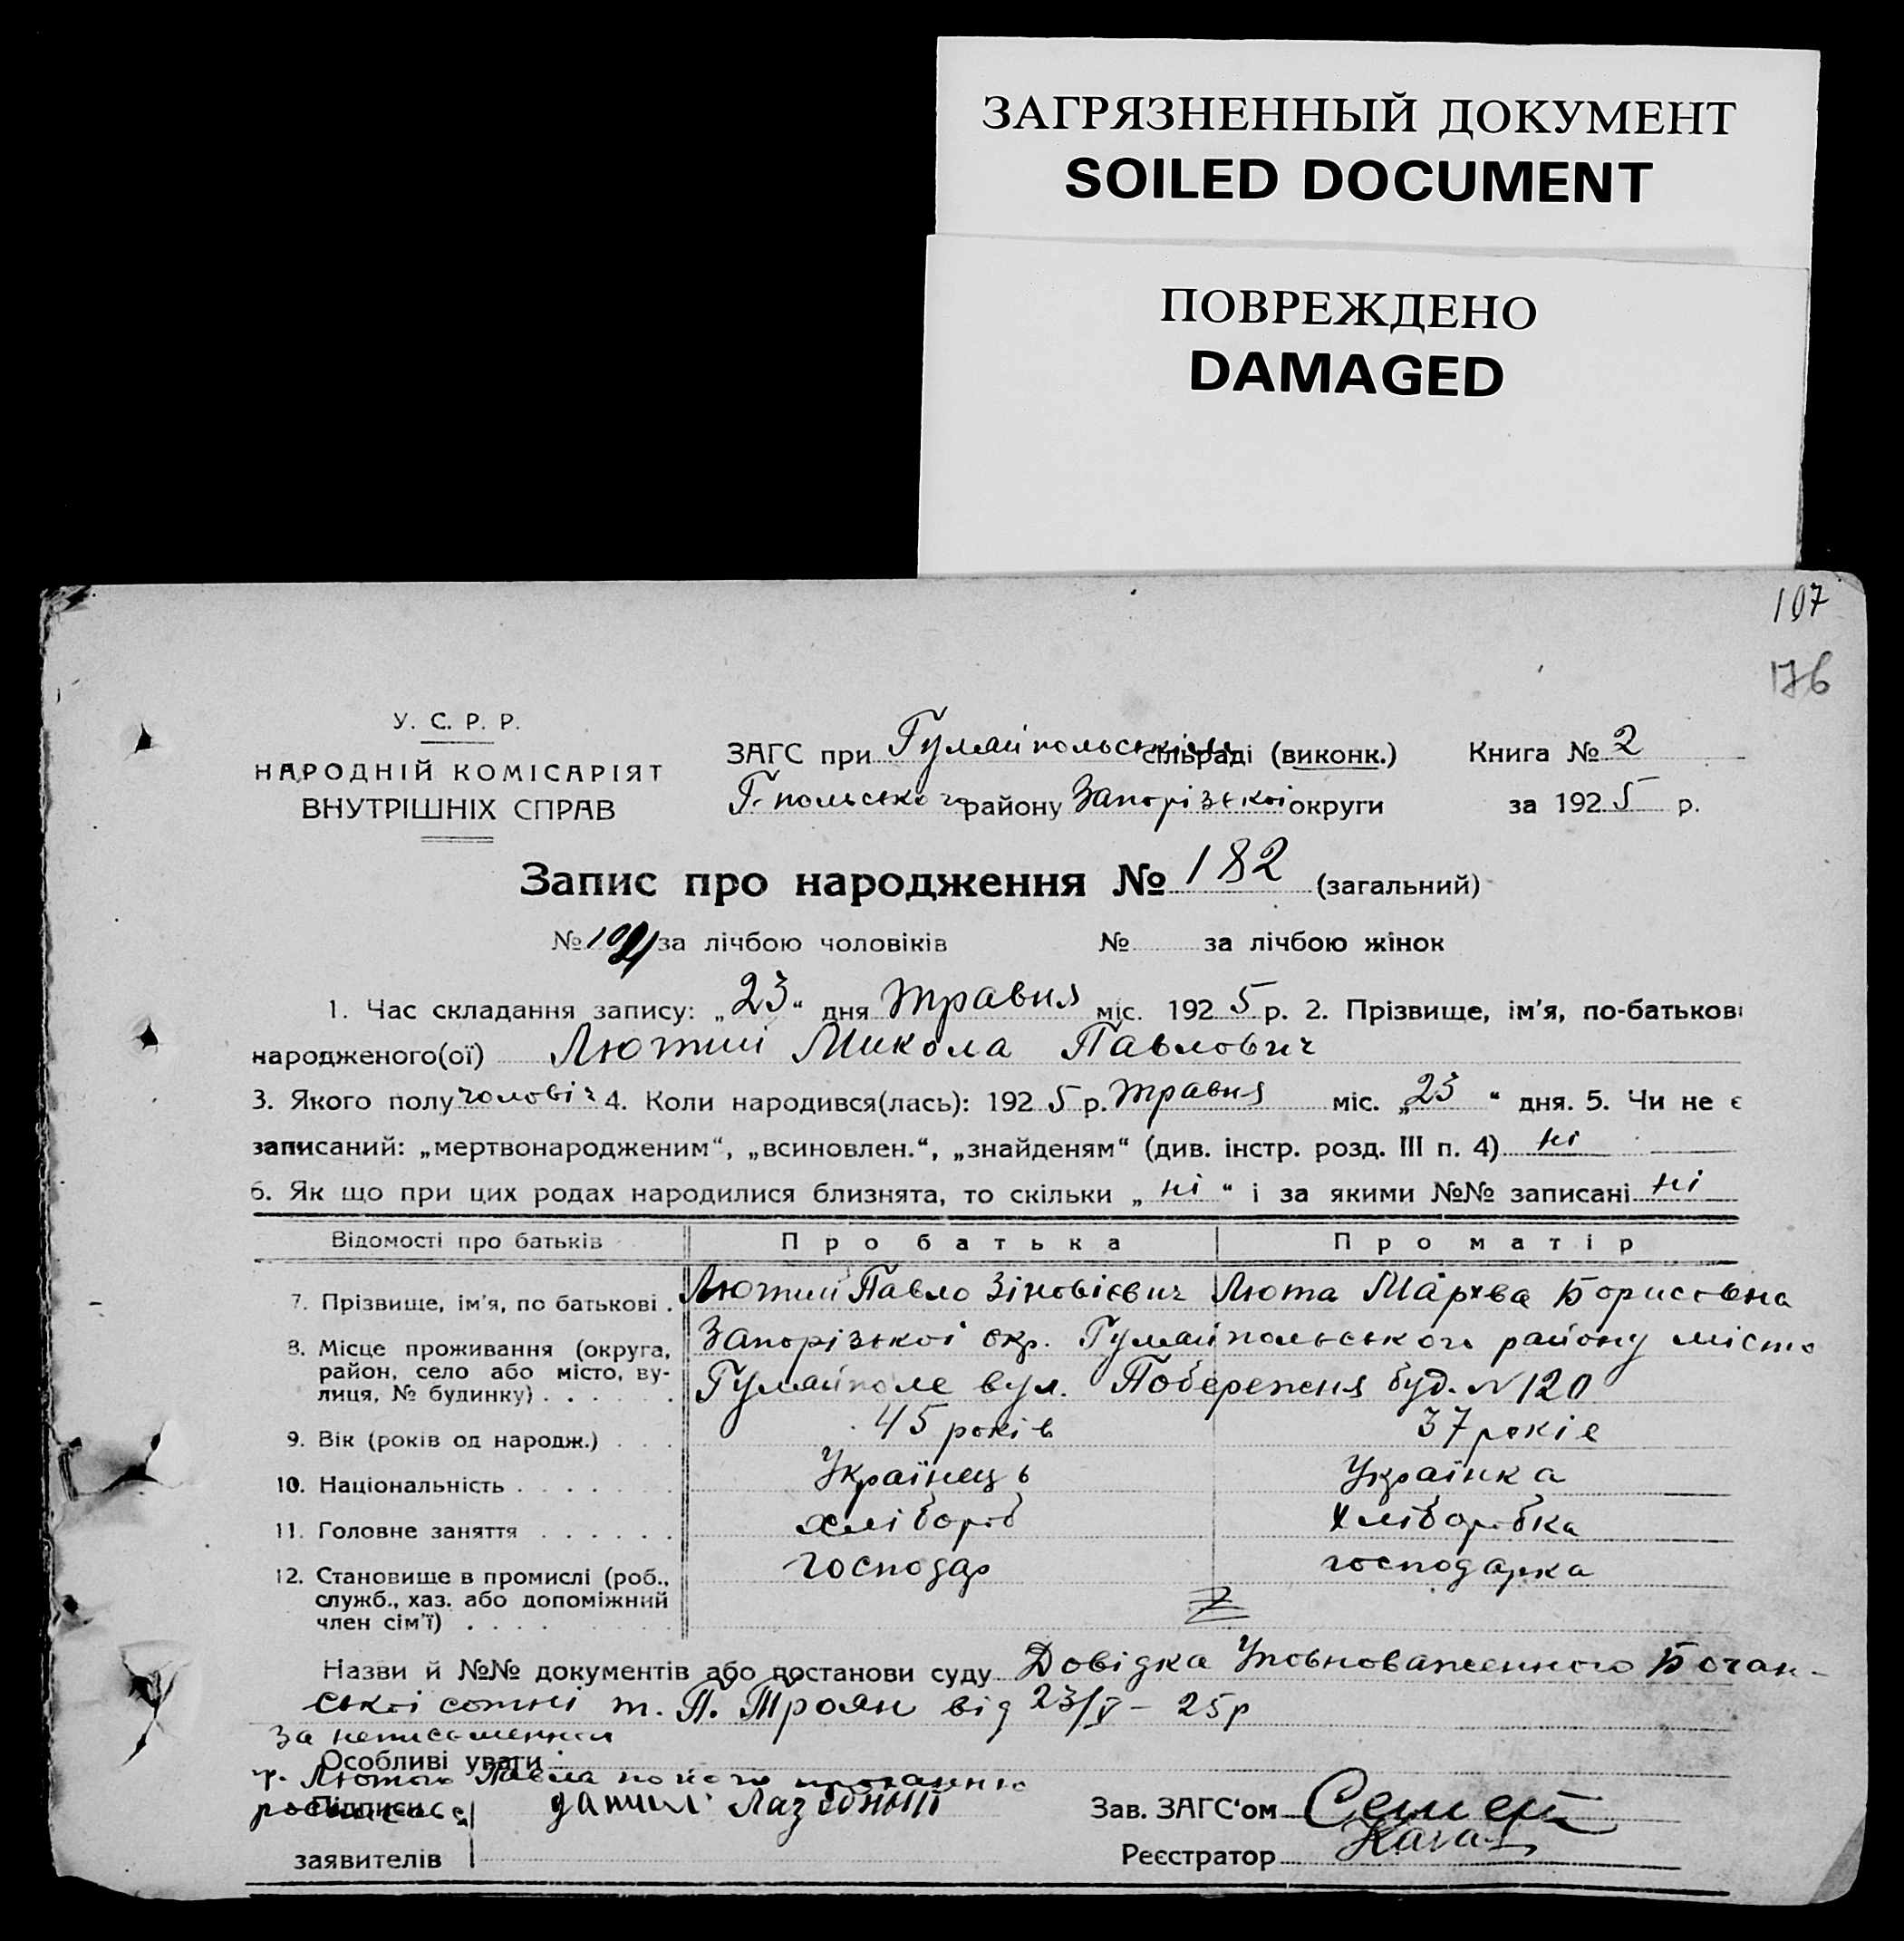 ЗАГРЯЗНЕННЫЙ ДОКУМЕНТ
SOILED DOCUMENT
ПОВРЕЖДЕНО
DAMAGED
107
176
У. С. Р. Р.
НАРОДНІЙ КОМІСАРІЯТ
ВНУТРІШНІХ СПРАВ
ЗАГС при Гумайпольській сільраді (виконк.) Книга № 2
Г-польського району Запорізької округи за 1925 р.
Запис про народження № 182 (загальний)
№ за лічбою чоловіків № за лічбою жінок
1. Час складання запису: „23“ дня травня міс. 1925 р. 2. Прізвище, ім'я, по-батькові
народженого(ої) Лютий Микола Павлович
3. Якого полу чоловіч 4. Коли народився(лась): 1925 р. травня міс. „23“ дня. 5. Чи не є
записаний: „мертвонародженим“, „всиновлен.“, „знайденям“ (див. інстр. розд. III п. 4) ні
6. Як що при цих родах народилися близнята, то скільки „ні“ і за якими №№ записані ні
Відомості про батьків Про батька Про матір
7. Прізвище, ім'я, по батькові . Лютий Павло Зіновієвич Люта Борисовна
8. Місце проживання (округа, район, село або місто, вулиця, № будинку) . . . . . Запорізької окр. Гумайпольського району місто
Гумайполе вул. Побережня буд. № 120
9. Вік (років од народж.) . . . 45 років 37 років
10. Національність . . . . . . . Українець Українка
11. Головне заняття . . . . . . хлібороб хліборобка
12. Становище в промислі (роб., служб., хаз. або допоміжний член сім'ї) . . . . господар господарка
Назви й №№ документів або постанови суду Довідка Уповноваженного Бочан-
ської сотні т. П. Троян від 23/V - 25р
за неписьменния
Особливі уваги :
гр. Лютого Павла по його проханню
Підписи
заявителів
Зав. ЗАГС'ом
Реєстратор